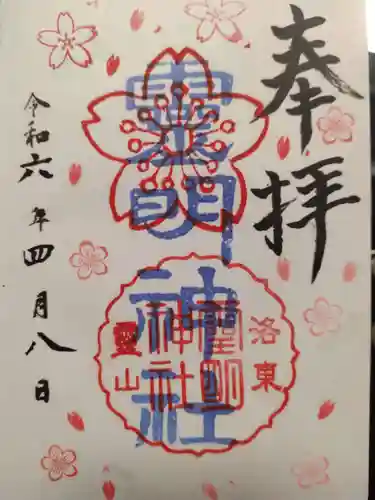 奉拝
霊明神社
洛東
霊明
神社
霊山
令和六年四月八日